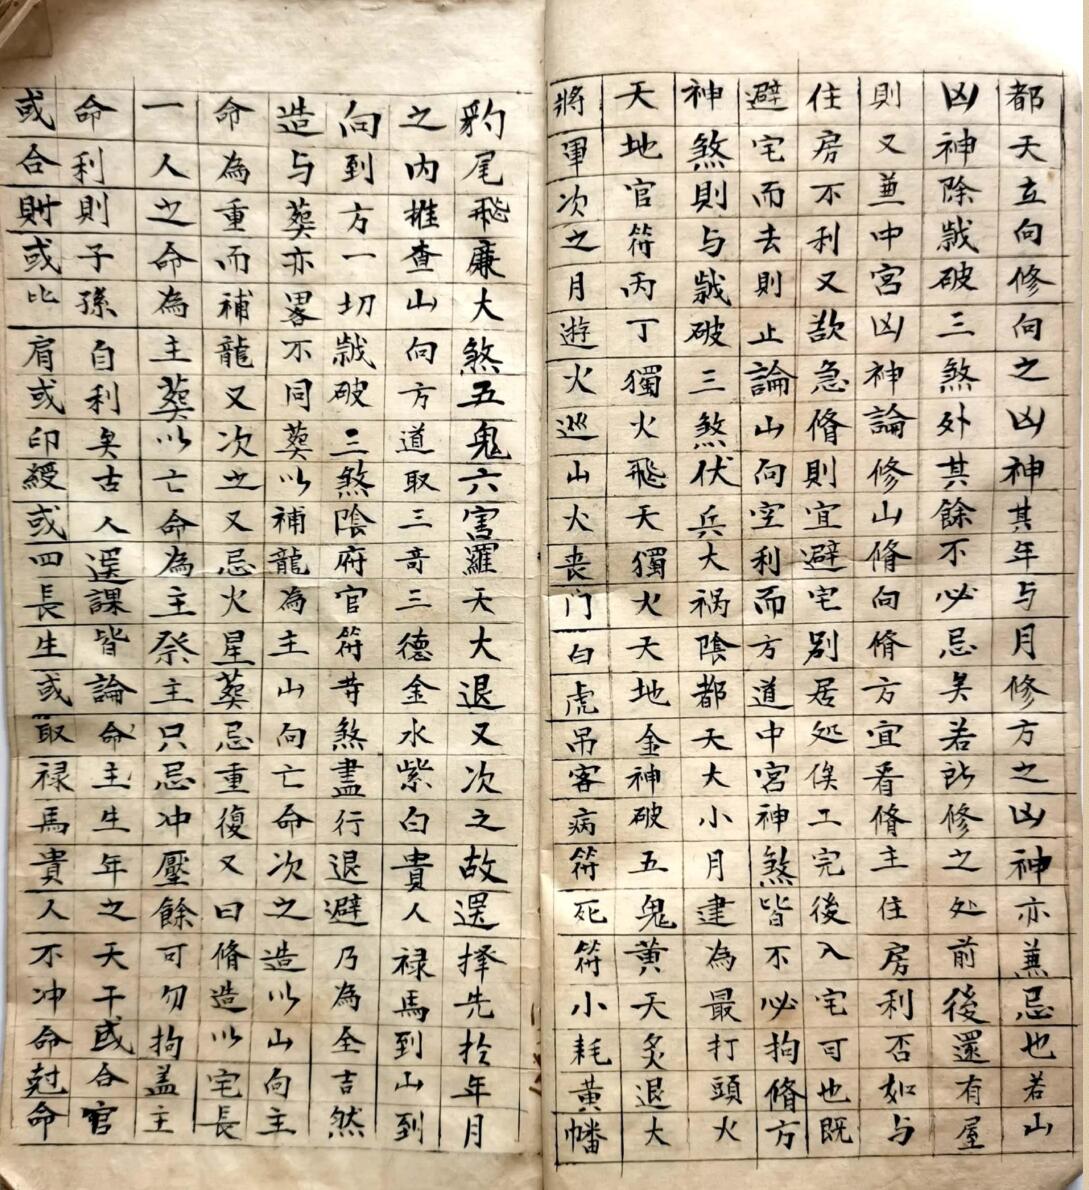 都天立向修向之凶神其年与月修方之凶神亦兼忌也若山
凶神除戧破三煞外其餘不必忌矣若所修之处前後還有屋
則又兼中宮凶神論修山脩向脩方宜看脩主住房利否如与
住房不利又歃急脩則宜避宅别居处俟工完後入宅可也既
避宅而去則止論山向空利而方道中宮神煞皆不必拘脩方
神煞則与戧破三煞伏兵大祸陰都天大小月建為最打頭火
天地官符丙丁獨火飛天獨火天地金神破五鬼黄天炙退大
將軍次之月遊火巡山火喪门白虎吊客病符死符小耗黄幡
豹尾飛廉大煞五鬼六害羅天大退又次之故选擇先於年月
之内推查山向方道取三奇三德金水紫白貴人禄馬到山到
向到方一切戧破三煞陰府官符䓁煞盡行退避乃為全吉然
造与葬亦畧不同葬以補龍為主山向亡命次之造以山向主
命為重而補龍又次也又忌火星葬忌重復又曰脩造以宅長
一人之命為主葬以亡命為主祭主只忌冲壓餘可勿拘盖主
命利則子孫自利矣古人选課皆論命主生年之天干或合官
或合財或比肩或印綬或四長生或取禄馬貴人不冲命尅命